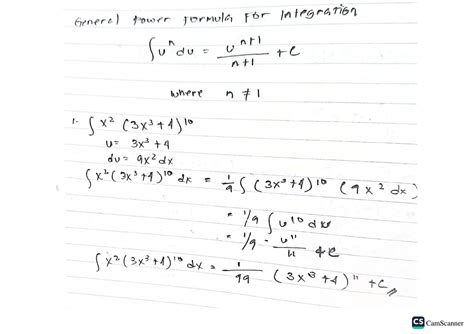 General Power Formula For Integration
∫uⁿ du = uⁿ⁺¹/n+1 + C
where n ≠ 1
1. ∫x² (3x³+4)¹⁰
u = 3x³+4
du = 9x² dx
∫x² (3x³+4)¹⁰ dx = 1/9 ∫ (3x³+4)¹⁰ (9x² dx)
= 1/9 ∫ u¹⁰ du
= 1/9 · u¹¹/11 + C
∫x² (3x³+4)¹⁰ dx = 1/99 (3x³+4)¹¹ + C//
CS CamScanner